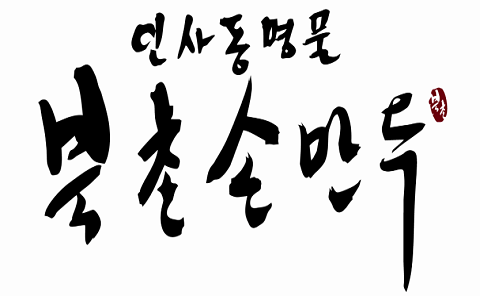 인사동명물
북촌손만두
북촌